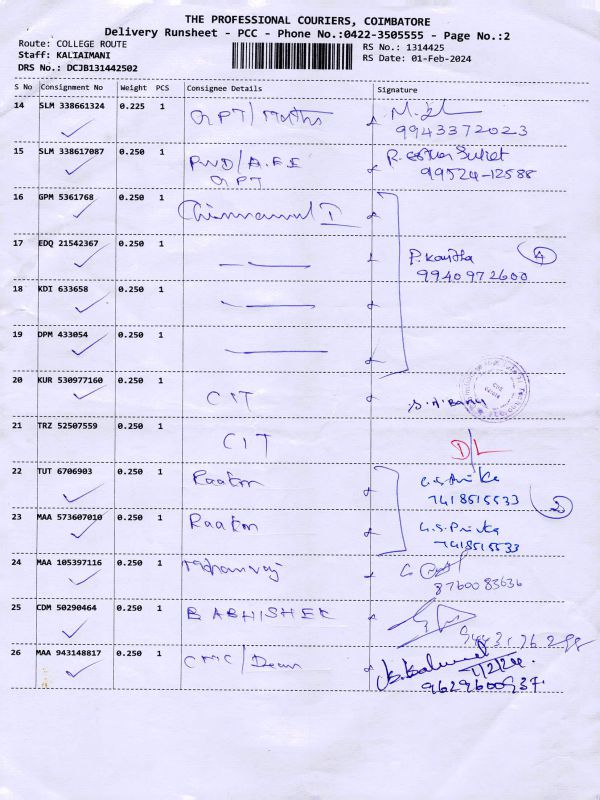 THE PROFESSIONAL COURIERS, COIMBATORE
Delivery Runsheet - PCC - Phone No.:0422-3505555 - Page No.:2
Route: COLLEGE ROUTE
Staff: KALIAIMANI
DRS No.: DCJB131442502
RS No.: 1314425
RS Date: 01-Feb-2024
S No Consignment No Weight PCS Consignee Details Signature
14 SLM 338661324 0.225 1 GPT/Maths
9943372023
15 SLM 338617087 0.250 1 PWD/A.E.E
GPT
99524-12588
16 GPM 5361768 0.250 1
17 EDQ 21542367 0.250 1
P. Kavitha 4
9940972600
18 KDI 633658 0.250 1
19 DPM 433054 0.250 1
20 KUR 530977160 0.250 1 CIT
21 TRZ 52507559 0.250 1 CIT D/L
22 TUT 6706903 0.250 1
7418515533 2
23 MAA 573607010 0.250 1
G.S.Priyka
7418515533
24 MAA 105397116 0.250 1 Mohanraj
8760083636
25 CDM 50290464 0.250 1 B ABHISHEK
26 MAA 943148817 0.250 1 CMC/Dean
1/2/24.